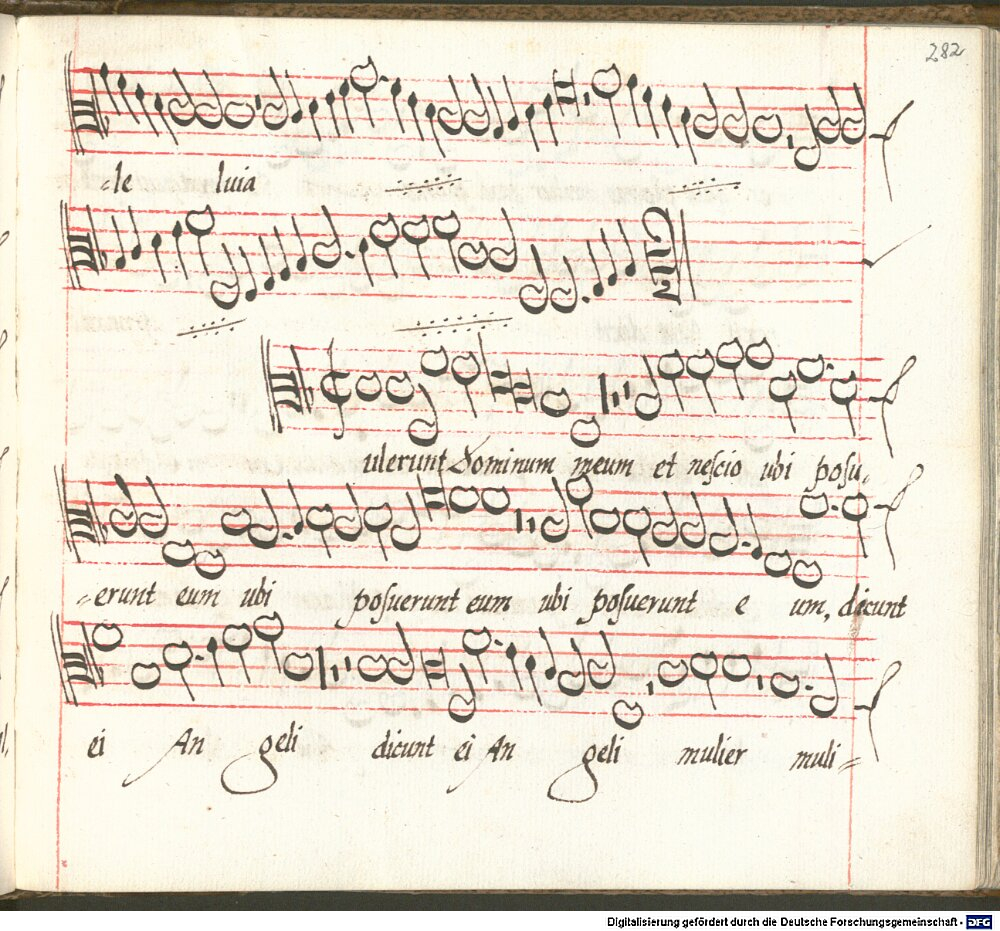 282
-le luia
ulerunt Dominum meum et nescio ubi posu-
-erunt eum ubi posuerunt eum ubi posuerunt e um, dicunt
ei An geli dicunt ei An geli mulier muli-
Digitalisierung gefördert durch die Deutsche Forschungsgemeinschaft - DFG